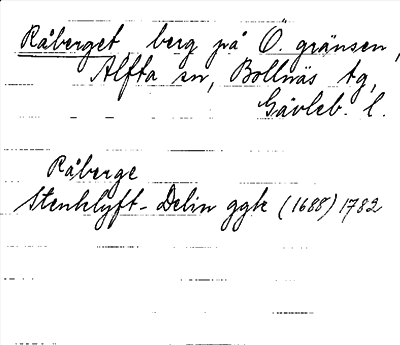 Råberget berg på Ö. gränsen,
Alfta sn, Bollnäs tg,
Gävleb. l.
Råberge
Stenklyft-Delin ggk (1688) 1782